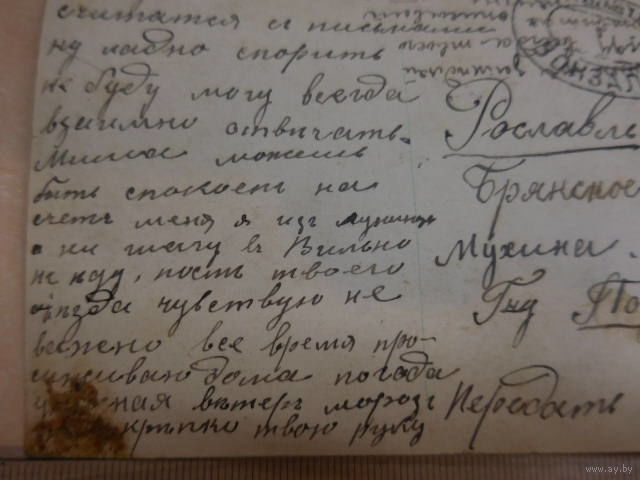 считатся съ письмами
ну ладно спорить
не буду могу всегда
взаимно отвѣчать.
Миша можешь
быть спокоенъ на
счетъ меня я изъ
ни шагу въ Вильно
не иду, послѣ твоего
чувствую не
важно все время про-
сиживаю дома погода
вѣтеръ морозъ
крѣпко твою руку
Рославль
Брянское
Мухина.
Гнд По
Передать
www.ay.by